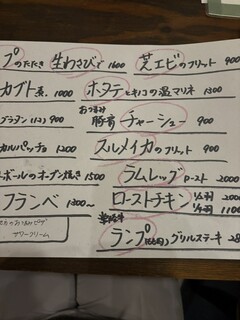 プのたたき 生わさびで 1600
芝エビのフリット 900
カブト煮. 1000
ホタテときのこの温マリネ 1300
グラタン(1コ) 900
おつまみ
豚肩 チャーシュー 900
カルパッチョ 1200
スルメイカのフリット 900
ボールのオーブン焼き 1500
ラムレッグロースト 2000
フランベ 1300〜
ローストチキン 1/2羽 2000
1/4羽 1100
サワークリーム
ランプ グリルステーキ 28